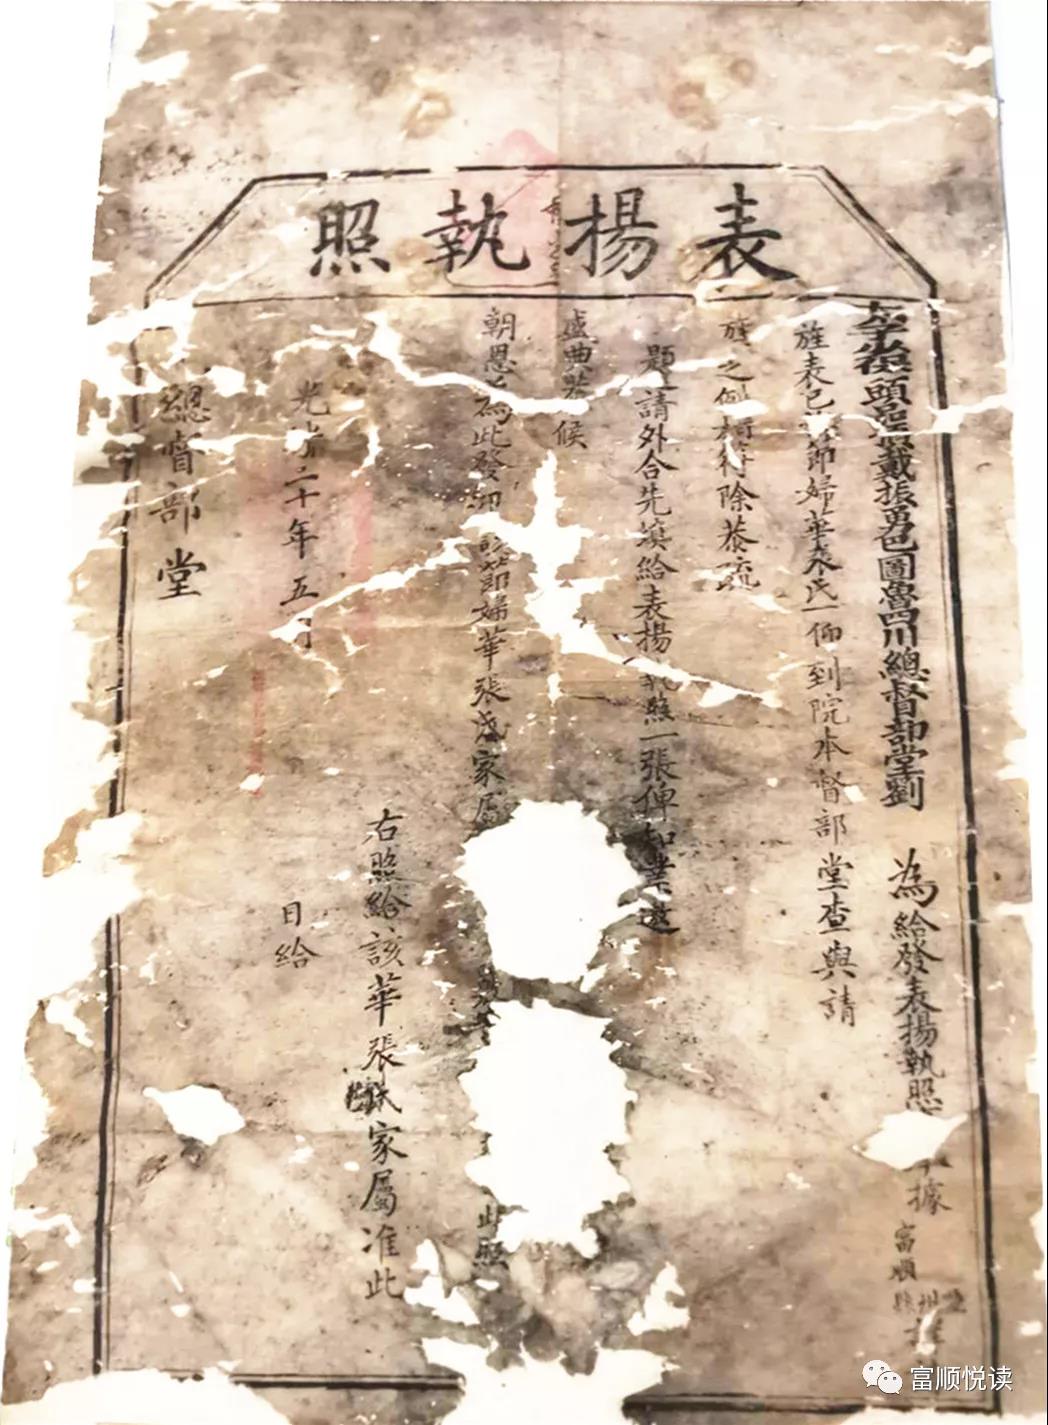 表揚執照
頭品頂戴振勇巴圖魯四川總督部堂劉 為給發表揚執照 據富順縣
旌表已 節婦華 氏一 到院本督部堂查與請
旌之例相符除恭疏
題請外合先填給表揚執照一張俾知 邀
盛典恭候
朝恩 為此發 該節婦華張 家屬 此照
右照給該華張氏家屬准此
光緒二十年五月 日給
總督部堂
富顺悦读